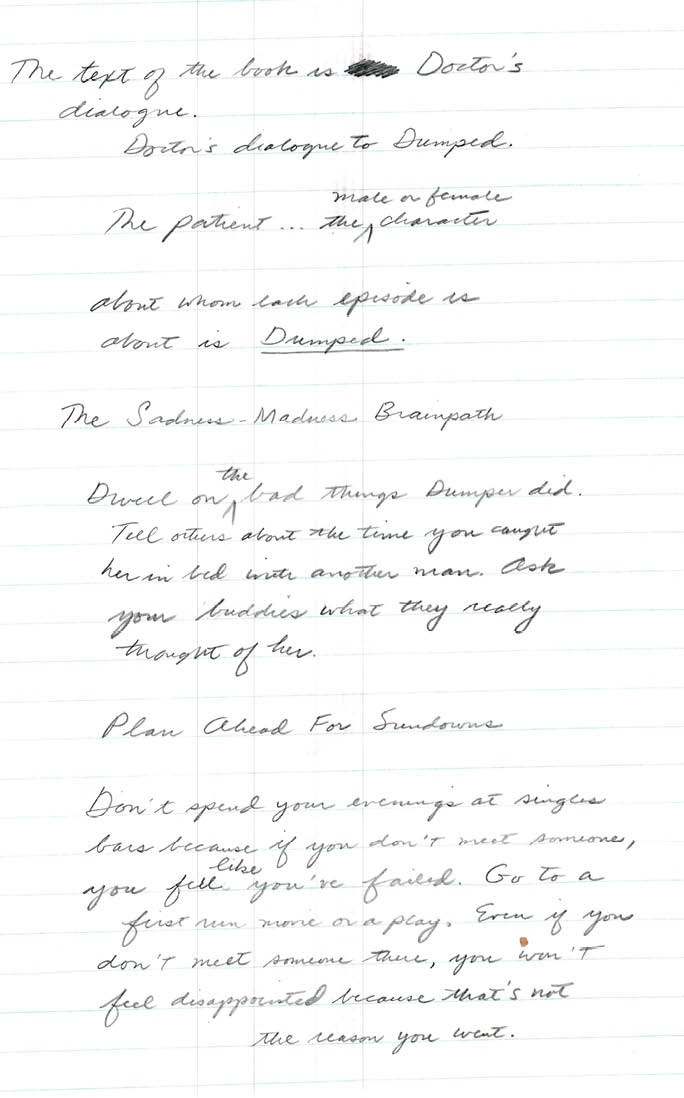 The text of the book is Doctor's
dialogue.
Doctor's dialogue to Dumped.
male or female
The patient... the ^ character
about whom each episode is
about is Dumped.
The Sadness-Madness Brainpath
the
Dwell on ^ bad things Dumper did.
Tell others about the time you caught
her in bed with another man. Ask
your buddies what they really
thought of her.
Plan Ahead For Sundowns
Don't spend your evenings at singles
bars because if you don't meet someone,
like
you fell you've failed. Go to a
first run movie or a play. Even if you
don't meet someone there, you won't
feel disappointed because that's not
the reason you went.